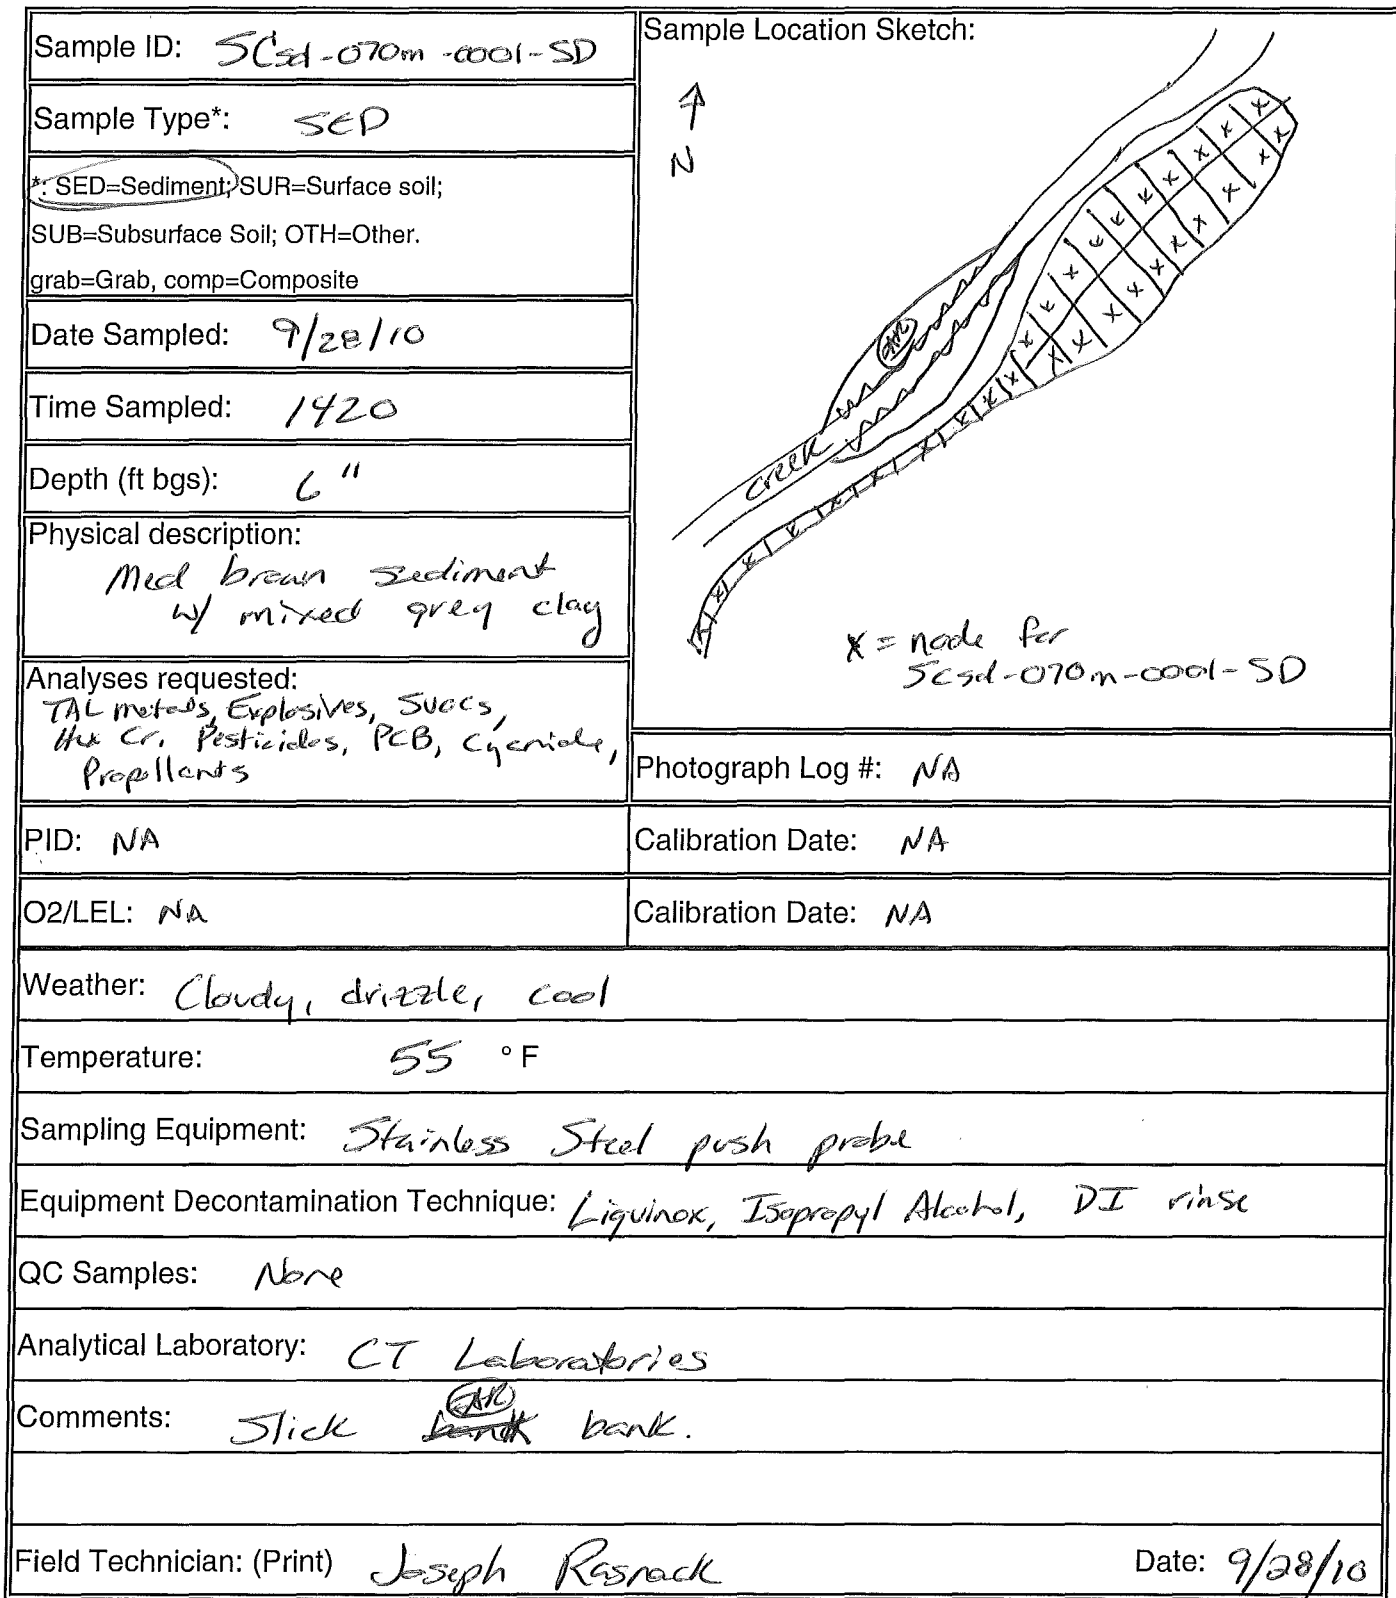 Sample ID: SCsd-070m-0001-SD
Sample Type*: SED
*: SED=Sediment; SUR=Surface soil;
SUB=Subsurface Soil; OTH=Other.
grab=Grab, comp=Composite
Date Sampled: 9/28/10
Time Sampled: 1420
Depth (ft bgs): 6"
Physical description:
Med brown sediment
w/ mixed grey clay
Analyses requested:
TAL metals, Explosives, SVOCs,
Hex Cr, Pesticides, PCB, Cyanide,
Propellants
Sample Location Sketch:
N
creek
x = node for
SCsd-070m-0001-SD
Photograph Log #: NA
PID: NA
Calibration Date: NA
O2/LEL: NA
Calibration Date: NA
Weather: Cloudy, drizzle, cool
Temperature: 55 °F
Sampling Equipment: Stainless Steel push probe
Equipment Decontamination Technique: Liquinox, Isopropyl Alcohol, DI rinse
QC Samples: None
Analytical Laboratory: CT Laboratories
Comments: Slick bank.
Field Technician: (Print) Joseph Rasnack Date: 9/28/10